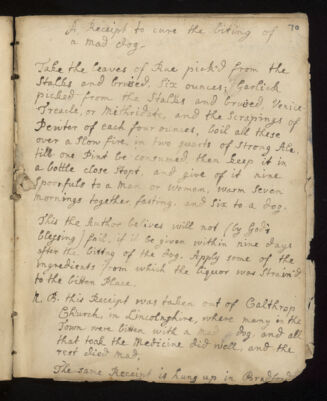 70
A Receipt to cure the biting of
a mad Dog.
Take the leaves of Rue pick'd from the
Stalks and bruised, Six ounces; Garlick
picked from the Stalks and bruised, Venice
Treacle, or Methridate, and the Scrapings of
Pewter of each four ounces, boil all these
over a Slow fire, in two quarts of Strong Ale,
till one Pint be consumed then keep it in
a bottle close Stopt and give of it nine
Spoonfuls to a Man or Woman, warm Seven
mornings together fasting, and Six to a dog.
This the Author belives will not (by God's
blessing) fail, if it be given within nine days
after the biting of the dog. Apply some of the
ingredients from which the liquor was Strain'd
to the bitten Place.
N. B. this Receipt was taken out of Calthrop
Church, in Lincolnshire, where many in the
Town were bitten with a mad dog, and all
that took the Medicine did well, and the
rest died mad;
The same Receipt is hung up in Bradford